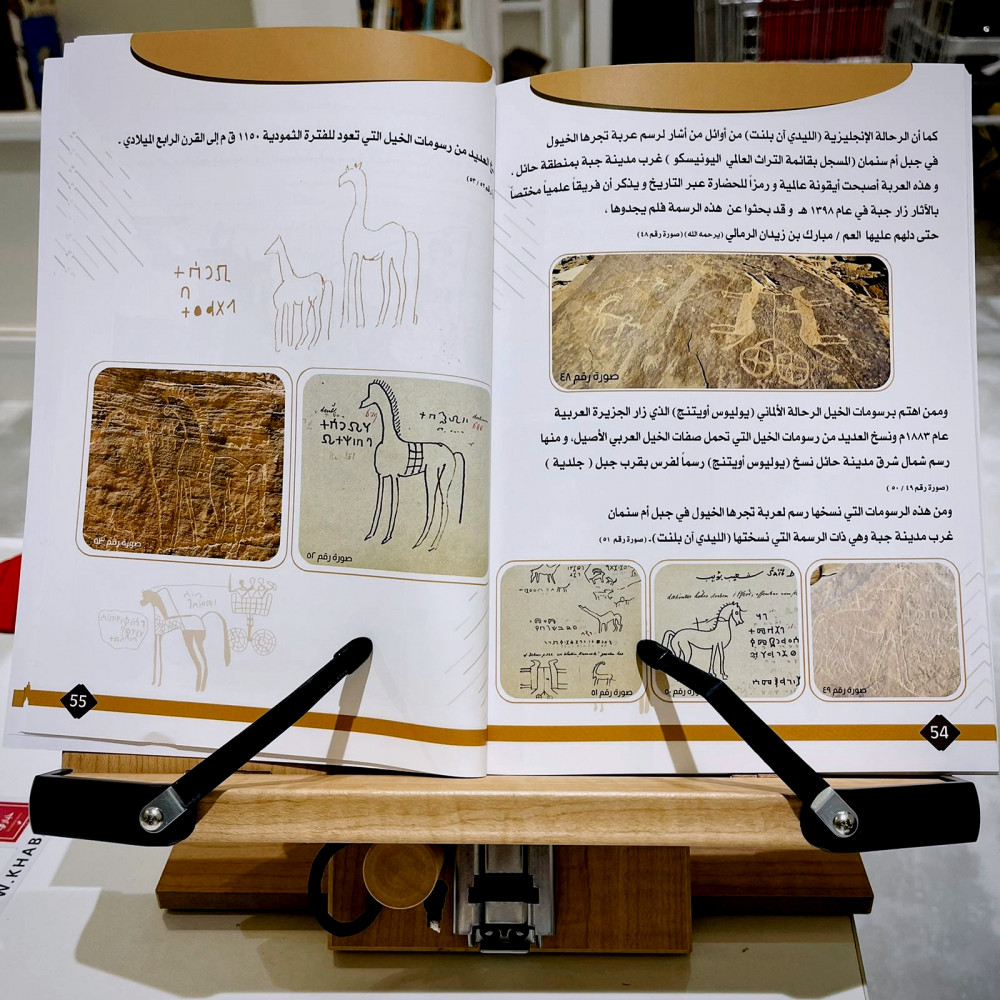 كما أن الرحالة الإنجليزية (الليدي آن بلنت) من أوائل من أشار لرسم عربة تجرها الخيول
في جبل أم سنمان (المسجل بقائمة التراث العالمي اليونيسكو ) غرب مدينة جبة بمنطقة حائل ،
و هذه العربة أصبحت أيقونة عالمية و رمزاً للحضارة عبر التاريخ و يذكر أن فريقاً علمياً مختصاً
بالآثار زار جبة في عام ١٣٩٨ هـ و قد بحثوا عن هذه الرسمة فلم يجدوها ،
حتى دلهم عليها العم / مبارك بن زيدان الرمالي (يرحمه الله) (صورة رقم ٤٨)
صورة رقم ٤٨
وممن اهتم برسومات الخيل الرحالة الألماني (يوليوس أويتنج) الذي زار الجزيرة العربية
عام ١٨٨٣م ونسخ العديد من رسومات الخيل التي تحمل صفات الخيل العربي الأصيل، و منها
رسم شمال شرق مدينة حائل نسخ (يوليوس أويتنج) رسماً لفرس بقرب جبل ( جلدية )
(صورة رقم ٤٩ / ٥٠ )
ومن هذه الرسومات التي نسخها رسم لعربة تجرها الخيول في جبل أم سنمان
غرب مدينة جبة وهي ذات الرسمة التي نسختها (الليدي آن بلنت)ـ (صورة رقم ٥١)
صورة رقم ٤٩
صورة رقم ٥١
54
العديد من رسومات الخيل التي تعود للفترة الثمودية ١١٥٠ ق م إلى القرن الرابع الميلادي .
صورة رقم ٥٢
صورة رقم ٥٣
55
W.KHAB